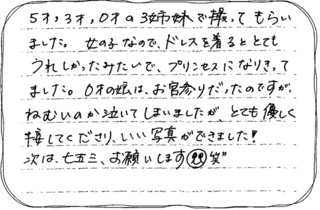 5才，3才，0才の3姉妹で撮ってもらい
ました。女の子なので、ドレスを着るととても
うれしかったみたいで、プリンセスになりきって
ました。0才の娘は、お宮参りだったのですが、
ねむいのか泣いてしまいましたが、とても優しく
接してくださり、いい写真ができました！
次は、七五三、お願いします 笑"